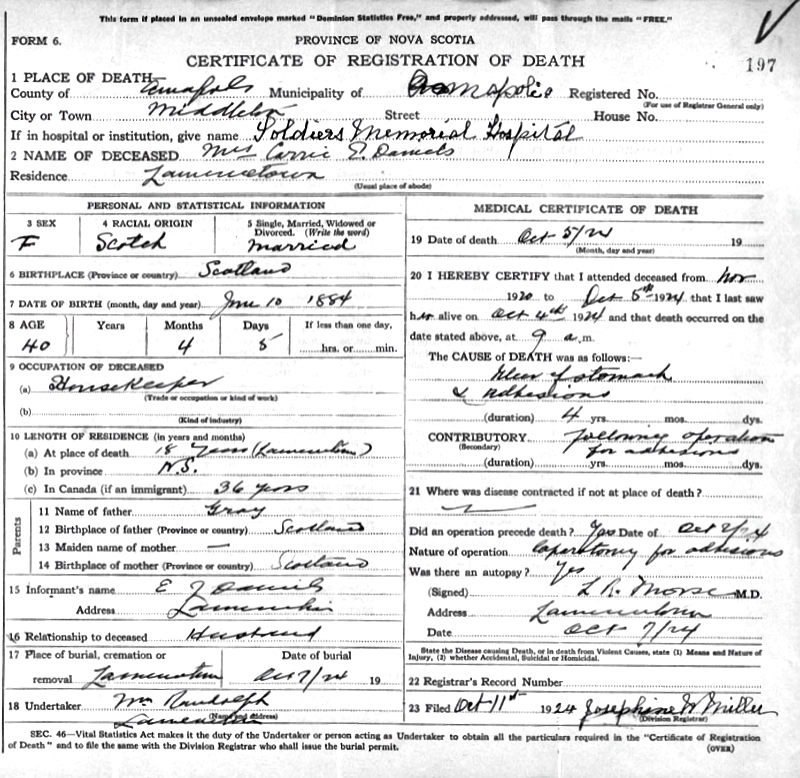 This form if placed in an unsealed envelope marked "Dominion Statistics Free," and properly addressed, will pass through the mails "FREE."
FORM 6.
PROVINCE OF NOVA SCOTIA
CERTIFICATE OF REGISTRATION OF DEATH
197
1 PLACE OF DEATH
County of Annapolis Municipality of Annapolis Registered No.
(For use of Registrar General only)
City or Town Middleton Street House No.
If in hospital or institution, give name Soldiers Memorial Hospital
2 NAME OF DECEASED Mrs Carrie E. Daniels
Residence Lawrencetown
(Usual place of abode)
PERSONAL AND STATISTICAL INFORMATION
3 SEX 4 RACIAL ORIGIN 5 Single, Married, Widowed or Divorced. (Write the word)
F Scotch Married
6 BIRTHPLACE (Province or country) Scotland
7 DATE OF BIRTH (month, day and year) June 10 1884
8 AGE Years Months Days If less than one day,
40 4 5 hrs. or min.
9 OCCUPATION OF DECEASED
(a) Housekeeper
(Trade or occupation or kind of work)
(b)
(Kind of industry)
10 LENGTH OF RESIDENCE (in years and months)
(a) At place of death 18 years (Lawrencetown)
(b) In province N.S.
(c) In Canada (if an immigrant) 36 years
Parents
11 Name of father Gray
12 Birthplace of father (Province or country) Scotland
13 Maiden name of mother —
14 Birthplace of mother (Province or country) Scotland
15 Informant's name E J Daniels
Address Lawrencetown
16 Relationship to deceased Husband
17 Place of burial, cremation or Date of burial
removal Lawrencetown Oct 7/24 19
18 Undertaker Wm Randolph
(Name and address)
Lawrencetown
MEDICAL CERTIFICATE OF DEATH
19 Date of death Oct 5/24 19
(Month, day and year)
20 I HEREBY CERTIFY that I attended deceased from Nov
1920 to Oct 5th 1924 that I last saw
her alive on Oct 4th 1924 and that death occurred on the
date stated above, at 9 a.m.
The CAUSE of DEATH was as follows:—
Ulcer of stomach
& adhesions
(duration) 4 yrs. mos. dys.
CONTRIBUTORY following operation
(Secondary) for adhesions
(duration) yrs. mos. dys.
21 Where was disease contracted if not at place of death?
Did an operation precede death? Yes Date of Oct 2/24
Nature of operation Laparotomy for adhesions
Was there an autopsy? Yes
(Signed) L R Morse M.D.
Address Lawrencetown
Date Oct 7/24
State the Disease causing Death, or in death from Violent Causes, state (1) Means and Nature of
Injury, (2) whether Accidental, Suicidal or Homicidal.
22 Registrar's Record Number
23 Filed Oct 11st 1924 Josephine W Miller
(Division Registrar)
SEC. 46—Vital Statistics Act makes it the duty of the Undertaker or person acting as Undertaker to obtain all the particulars required in the "Certificate of Registration
of Death" and to file the same with the Division Registrar who shall issue the burial permit.
(OVER)